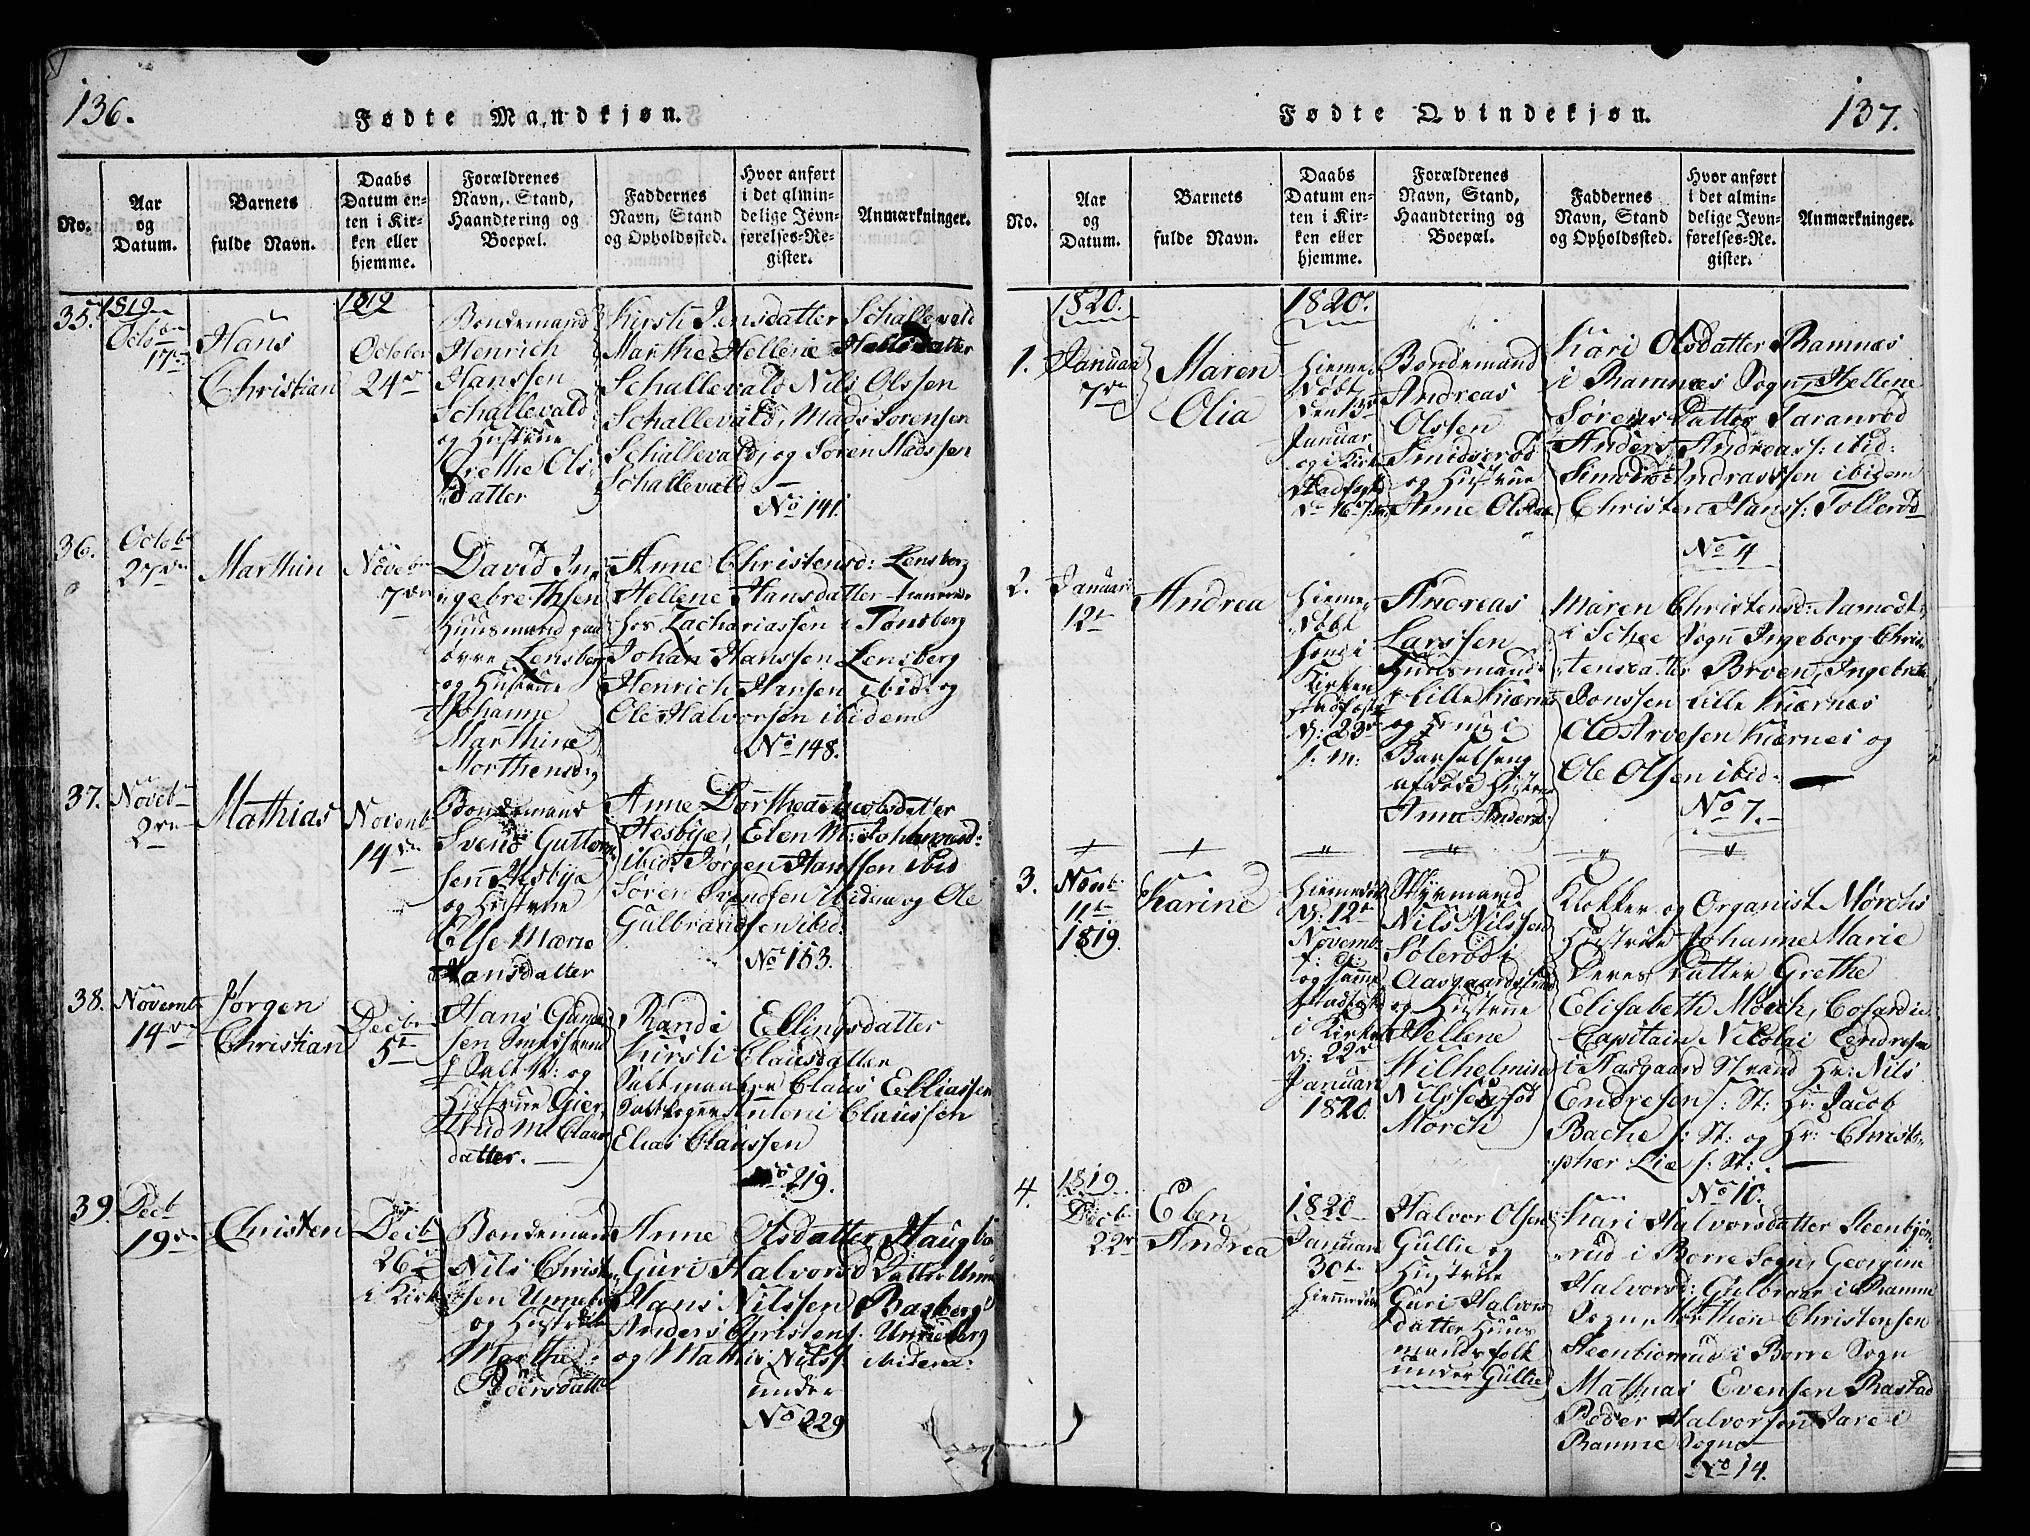 136.
Fødte Mandkjøn.
No.
Aar
og
Datum.
Barnets
fulde Navn.
Daabs
Datum en-
ten i Kir-
ken eller
hjemme.
Forældrenes
Navn, Stand,
Haandtering og
Boepæl.
Faddernes
Navn, Stand
og Opholdssted.
Hvor anført
i det almin-
delige Jevn-
førelses-Re-
gister.
Anmærkninger.
35.
1819
Octobr
17de
Hans
Christian
1819
October
24de
Bondemand
Henrich
Hanssen
Schallevald
og Hustrue
Grethe Ols
Datter
Kirsti Jensdatter Schallevald
Marthe Hellene
Schallevald Nils Olssen
Schallevald, Mads Sørensen
Schallevald, og Søren Madssen
Schallevald
No 141.
36.
Octobr
27de
Marthin
Novebr
7de
David In-
gebrethsen
Huusmand paa
øvre Lensberg
og Hustrue
Johanne
Marthine
Morthensd:
Anne Christensd: Lensberg
Hellene Hansdatter tienende
hos Zachariassen i Tønsberg
Johan Hanssen Lensberg
Henrich Hansen ibid: og
Ole Halvorsen ibidem
No 148.
37.
Novebr
2den
Mathias
Novembr
14de
Bondemand
Svend Guttorm
sen Hesbye
og Hustrue
Else Marie
Hansdatter
Anne Dorthea Jacobsdatter
Hesbye, Elen M: Johannesd:
ibid: Jørgen Hanssen ibid
Søren Svendsen ibidem og Ole
Gulbrandsen ibid:
No 153.
38.
Novembr
14de
Jørgen
Christian
Decbr
5te
Hans Gunde
sen
og
Hustrue Gier-
trud M. Claus
datter.
Randi Ellingsdatter
Kirsti Clausdatter
Claus Elliassen
Antoni Claussen
Elias Claussen
No 219.
39.
Decb
19de
Christen
Decb
26de
i Kirk
Bondemand
Nils Christen
sen Unneberg
og Hustrue
Marthe
Pedersdatter
Anne Olsdatter Haugberg
Guri Halvorsdatter Unne
Hans Nilssen Basberg
Anders Christens: Unneberg
og Mathis Nilss: ibidem:
under
No 229
137.
Fødte Qvindekjøn.
No.
Aar
og
Datum.
Barnets
fulde Navn.
Daabs
Datum en-
ten i Kir-
ken eller
hjemme.
Forældrenes
Navn, Stand,
Haandtering og
Boepæl.
Faddernes
Navn, Stand
og Opholdssted.
Hvor anført
i det almin-
delige Jevn-
førelses-Re-
gister.
Anmærkninger.
1820.
1820.
1.
Januar
7de
Maren
Olia
Hieme
døbt
den 13de
Januar
og i Kirk
stadfæst
d: 16de
Bondemand
Andreas
Olsen
Smidsrød
og Hustrue
Anne Olsdatter
Kari Olsdatter Ramnæs
i Ramnæs Sogn, Hellene
Sørens Datter Taranrød
Anders Andreas: ibid:
Simon Andreassen ibidem
Christen Hans: Tollerød
No 4
2.
Januar
12te
Andrea
Hieme
døbt
i
Kirken
stadfæst
d: 23de
s: m:
Andreas
Larssen
Huusmand
Lille Kiærnes
og i
Barselseng
afdøde Hustrue
Anne Anders
Maren Christensd: Aamodt
i Schee Sogn Ingeborg Chris
tensdatter Broen, Ingebret
Jonssen Lille Kiærnæs
Ole Arvesen Kiærnes og
Ole Olsen ibid:
No 7.
3.
Novb:
11te
1819.
Karine
Hiemedøbt
d: 12te
Novembr
f: A:
og samme
stadfæst
i Kirken
d: 22de
Januar
1820.
Styrmand
Nils Nilssen
Sølerød i
Aasgaardstrand
og Hustrue
Hellene
Wilhelmine
Nilssen fød
Mørch
Klokker og Organist Mørchs
Hustrue Johanne Marie
Deres Datter Grethe
Elisabeth Mørch, Cofardi
Capitain Nicolai Endresen
i Aasgaard Strand Hr: Nils
Endresen s: St: Hr: Jacob
Bache s: St: og Hr: Christo-
pher Lie s: St:
No 10.
4.
1819
Decbr
22de
Elen
Andrea
1820
Januar
30te
Hiemmedøbt
Halvor Olsen
Gullie og
Hustrue
Guri Halvors
datter Huus
mandsfolk
under Gullie
Kari Halvorsdatter Steenbiøn-
rud i Borre Sogn, Georgine
Halvorsd: Gulbraar i Ramne
Sogn Morthen Christensen
Steenbiønrud i Borre Sogn
Mathias Evensen Rastad
Peder Halvorsen Jare i
Ramne Sogn
No 14.